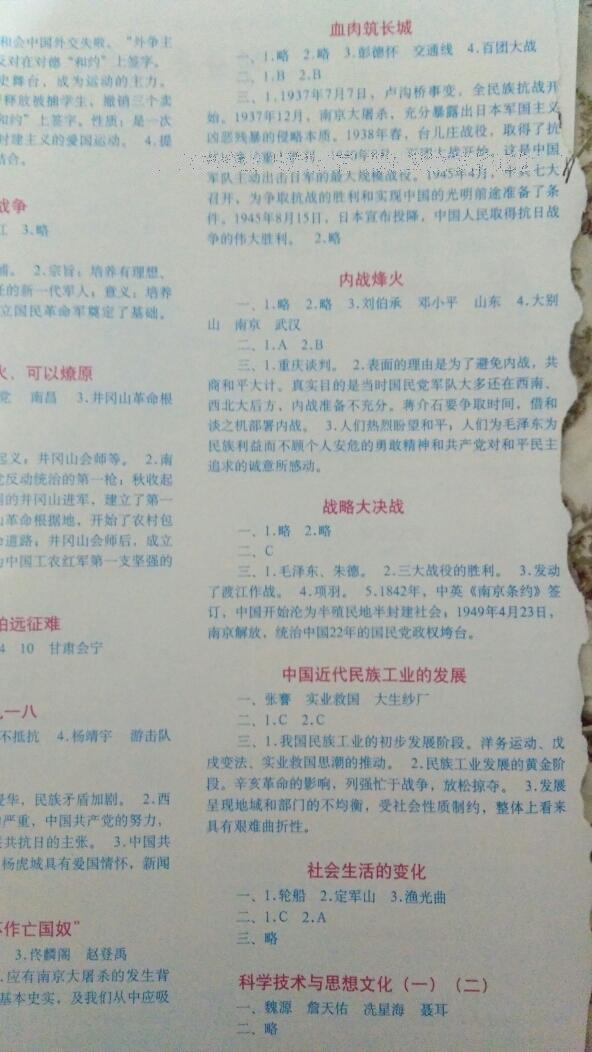 和会中国外交失败、“外争主
反对在对德“和约”上签字。
史舞台，成为运动的主力。
释放被捕学生，撤销三个卖
和约”上签字。性质：是一次
封建主义的爱国运动。 4.提
结合。
战争
江 3.略
浦。 2.宗旨：培养有理想、
任的新一代军人；意义：培养
立国民革命军奠定了基础。
火、可以燎原
党 南昌 3.井冈山革命根
起义；井冈山会师等。 2.南
党反动统治的第一枪；秋收起
国的井冈山进军，建立了第一
山革命根据地，开始了农村包
命道路；井冈山会师后，成立
为中国工农红军第一支坚强的
怕远征难
4 10 甘肃会宁
九一八
不抵抗 4.杨靖宇 游击队
侵华，民族矛盾加剧。 2.西
的严重，中国共产党的努力，
联共抗日的主张。 3.中国共
杨虎城具有爱国情怀，新闻
不作亡国奴”
3.佟麟阁 赵登禹
.应有南京大屠杀的发生背
基本史实，及我们从中应吸
血肉筑长城
一、1.略 2.略 3.彭德怀 交通线 4.百团大战
二、1.B 2.B
三、1.1937年7月7日，卢沟桥事变，全民族抗战开
始。1937年12月，南京大屠杀，充分暴露出日本军国主义
凶恶残暴的侵略本质。1938年春，台儿庄战役，取得了抗
百团大战开始，这是中国
军队主动出击日军的最大规模战役。1945年4月，中共七大
召开，为争取抗战的胜利和实现中国的光明前途准备了条
件。1945年8月15日，日本宣布投降，中国人民取得抗日战
争的伟大胜利。 2.略
内战烽火
一、1.略 2.略 3.刘伯承 邓小平 山东 4.大别
山 南京 武汉
二、1.A 2.B
三、1.重庆谈判。 2.表面的理由是为了避免内战，共
商和平大计。真实目的是当时国民党军队大多还在西南、
西北大后方，内战准备不充分。蒋介石要争取时间，借和
谈之机部署内战。 3.人们热烈盼望和平；人们为毛泽东为
民族利益而不顾个人安危的勇敢精神和共产党对和平民主
追求的诚意所感动。
战略大决战
一、1.略 2.略
二、C
三、1.毛泽东、朱德。 2.三大战役的胜利。 3.发动
了渡江作战。 4.项羽。 5.1842年，中英《南京条约》签
订，中国开始沦为半殖民地半封建社会；1949年4月23日，
南京解放，统治中国22年的国民党政权垮台。
中国近代民族工业的发展
一、张謇 实业救国 大生纱厂
二、1.C 2.C
三、1.我国民族工业的初步发展阶段。洋务运动、戊
戌变法、实业救国思潮的推动。 2.民族工业发展的黄金阶
段。辛亥革命的影响，列强忙于战争，放松掠夺。 3.发展
呈现地域和部门的不均衡，受社会性质制约，整体上看来
具有艰难曲折性。
社会生活的变化
一、1.轮船 2.定军山 3.渔光曲
二、1.C 2.A
三、略
科学技术与思想文化（一）（二）
一、魏源 詹天佑 冼星海 聂耳
二、略